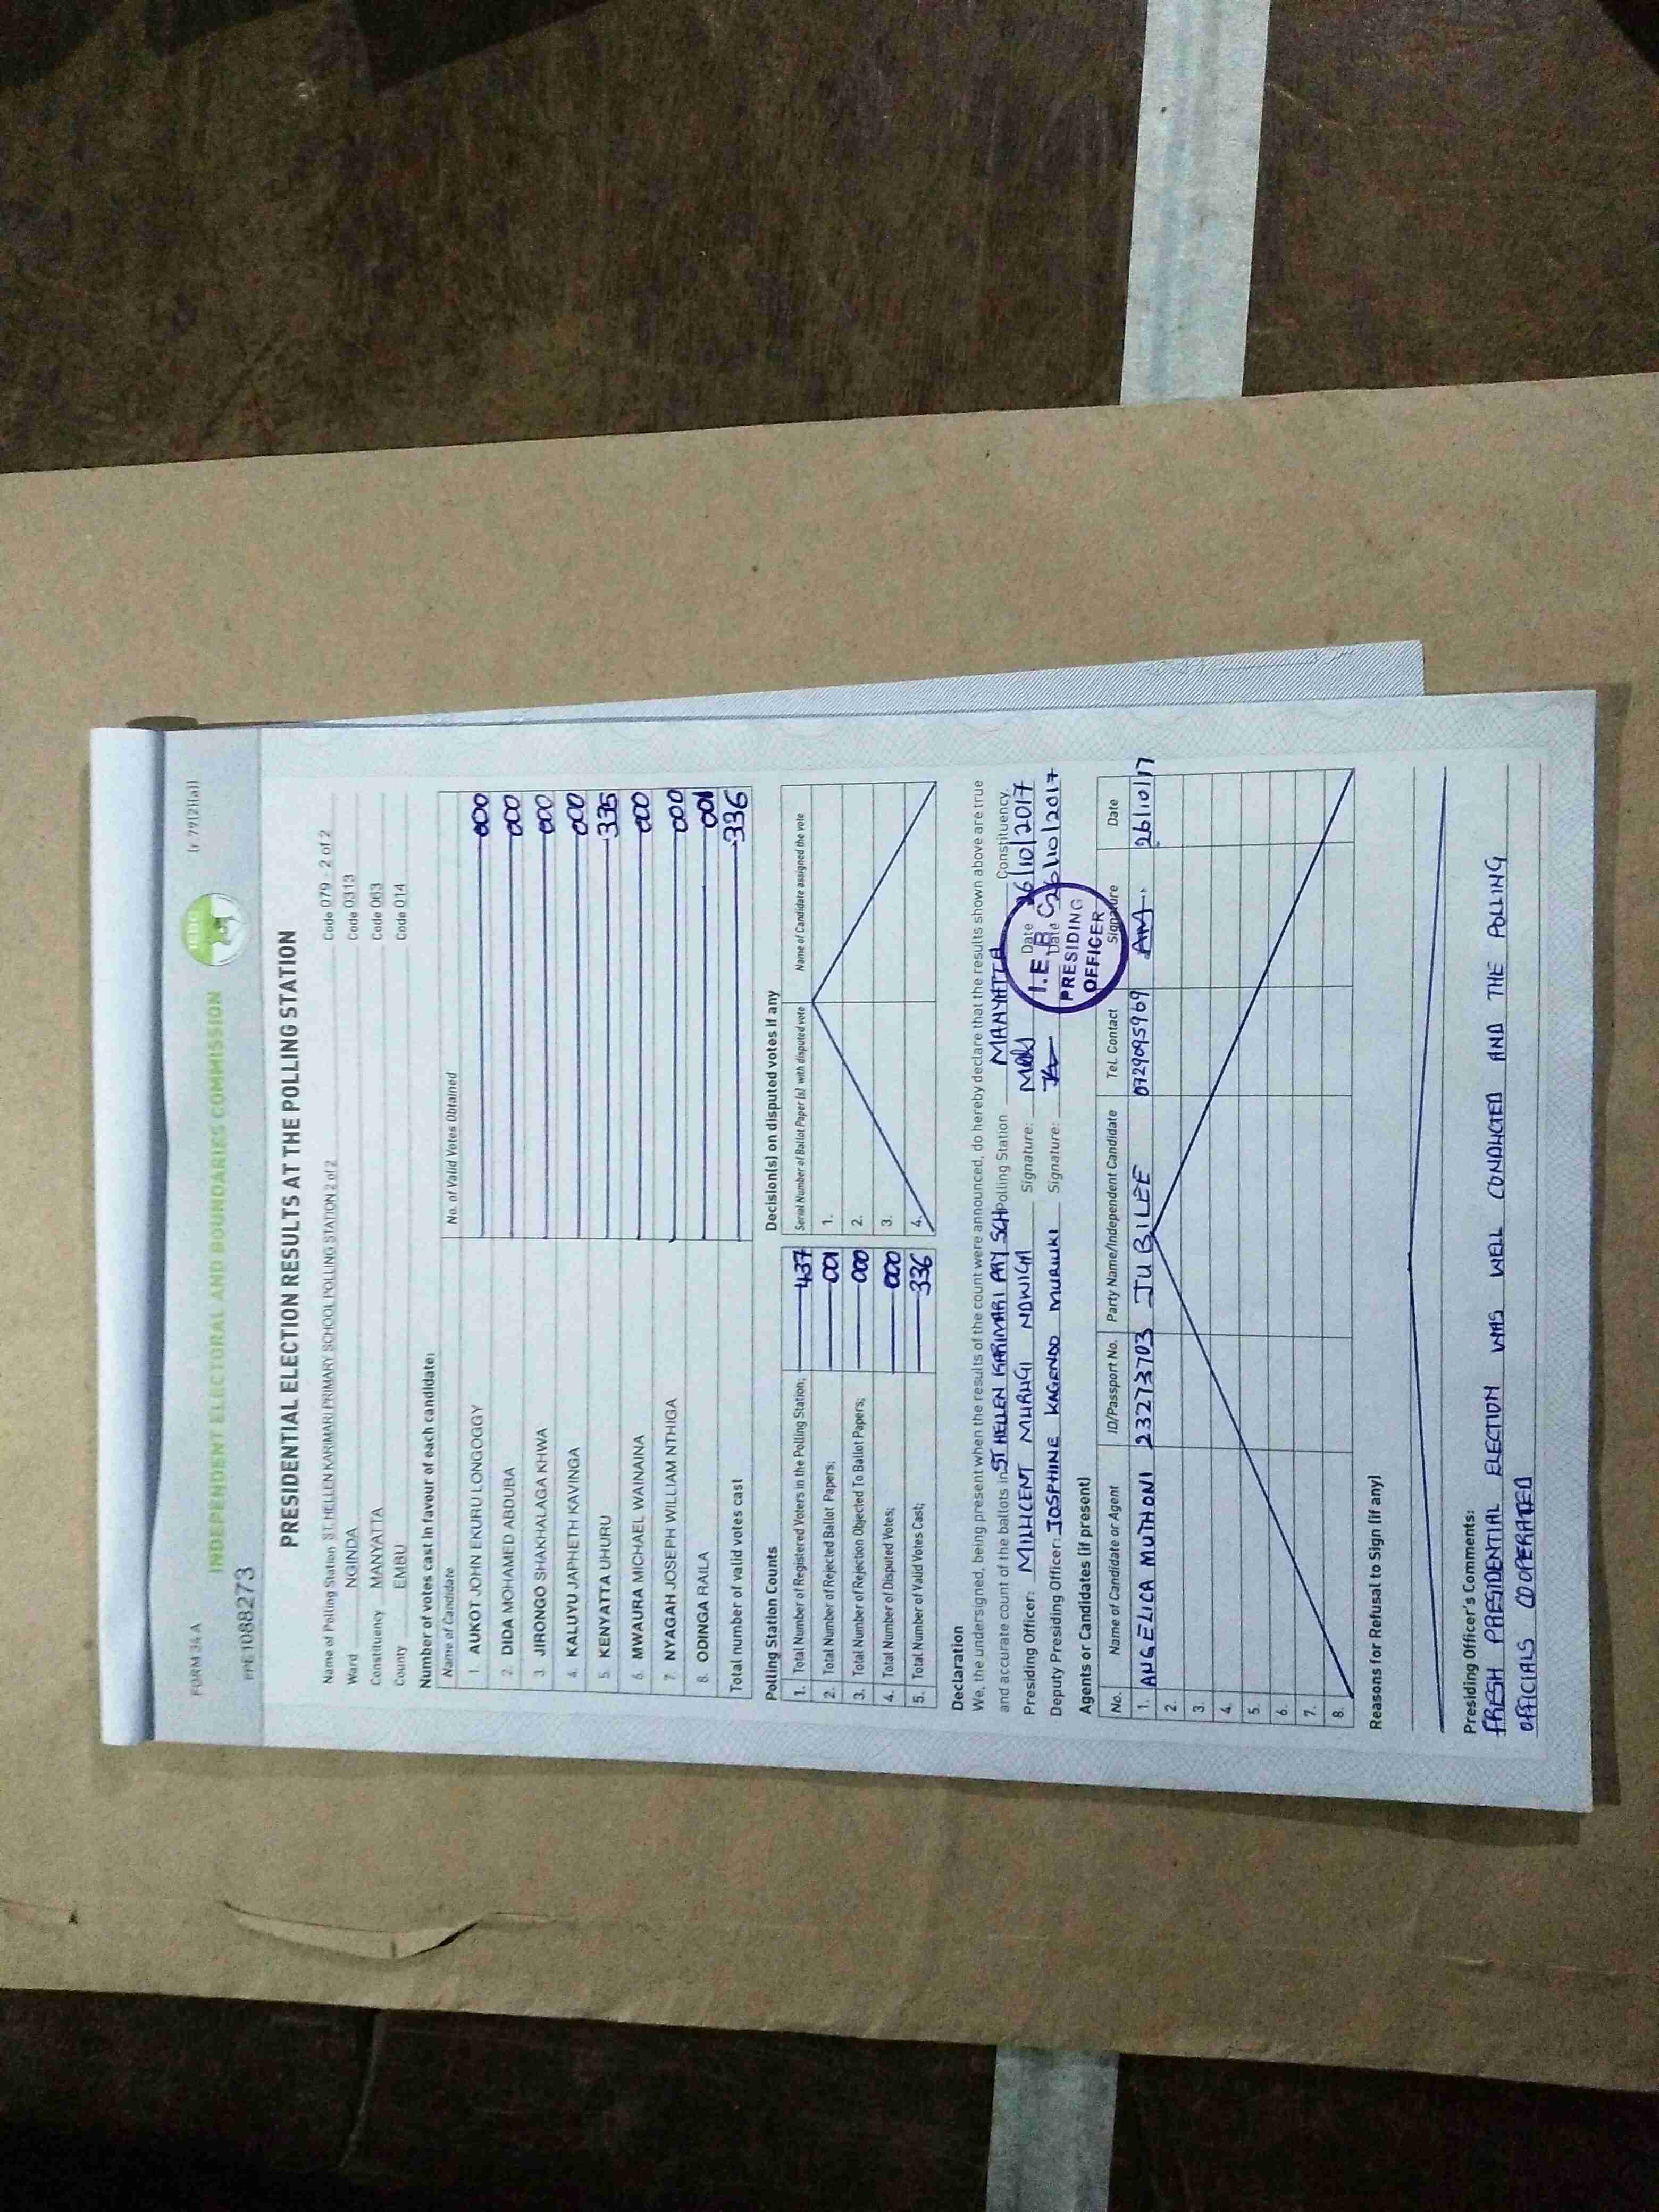 FORM 34 A
(r 79(2)(a))
INDEPENDENT ELECTORAL AND BOUNDARIES COMMISSION
IEBC
PRE1088273
PRESIDENTIAL ELECTION RESULTS AT THE POLLING STATION
Name of Polling Station ST. HELLEN KARIMARI PRIMARY SCHOOL POLLING STATION 2 of 2 Code 079 - 2 of 2
Ward NGINDA Code 0313
Constituency MANYATTA Code 063
County EMBU Code 014
Number of votes cast in favour of each candidate:
Name of Candidate No. of Valid Votes Obtained
1. AUKOT JOHN EKURU LONGOGGY 000
2. DIDA MOHAMED ABDUBA 000
3. JIRONGO SHAKHALAGA KHWA 000
4. KALUYU JAPHETH KAVINGA 000
5. KENYATTA UHURU 335
6. MWAURA MICHAEL WAINAINA 000
7. NYAGAH JOSEPH WILLIAM NTHIGA 000
8. ODINGA RAILA 001
Total number of valid votes cast 336
Polling Station Counts
1. Total Number of Registered Voters in the Polling Station; 437
2. Total Number of Rejected Ballot Papers; 001
3. Total Number of Rejection Objected To Ballot Papers; 000
4. Total Number of Disputed Votes; 000
5. Total Number of Valid Votes Cast; 336
Decision(s) on disputed votes if any
Serial Number of Ballot Paper (s) with disputed vote Name of Candidate assigned the vote
1.
2.
3.
4.
Declaration
We, the undersigned, being present when the results of the count were announced, do hereby declare that the results shown above are true
and accurate count of the ballots in ST HELLEN KARIMARI PRY SCH Polling Station MANYATTA Constituency
Presiding Officer: MILHCENT MURUGI NDWIGA Signature: Date 26/10/2017
Deputy Presiding Officer: JOSPHINE KAGENDO MURIUKI Signature: Date 26/10/2017
I.E.B.C
PRESIDING
OFFICER
Agents or Candidates (if present)
No. Name of Candidate or Agent ID/Passport No. Party Name/Independent Candidate Tel. Contact Signature Date
1. ANGELICA MUTHONI 23273703 JUBILEE 0729095969 26/10/17
2.
3.
4.
5.
6.
7.
8.
Reasons for Refusal to Sign (if any)
Presiding Officer's Comments:
FRESH PRESIDENTIAL ELECTION WAS WELL CONDUCTED AND THE POLLING
OFFICIALS COOPERATED